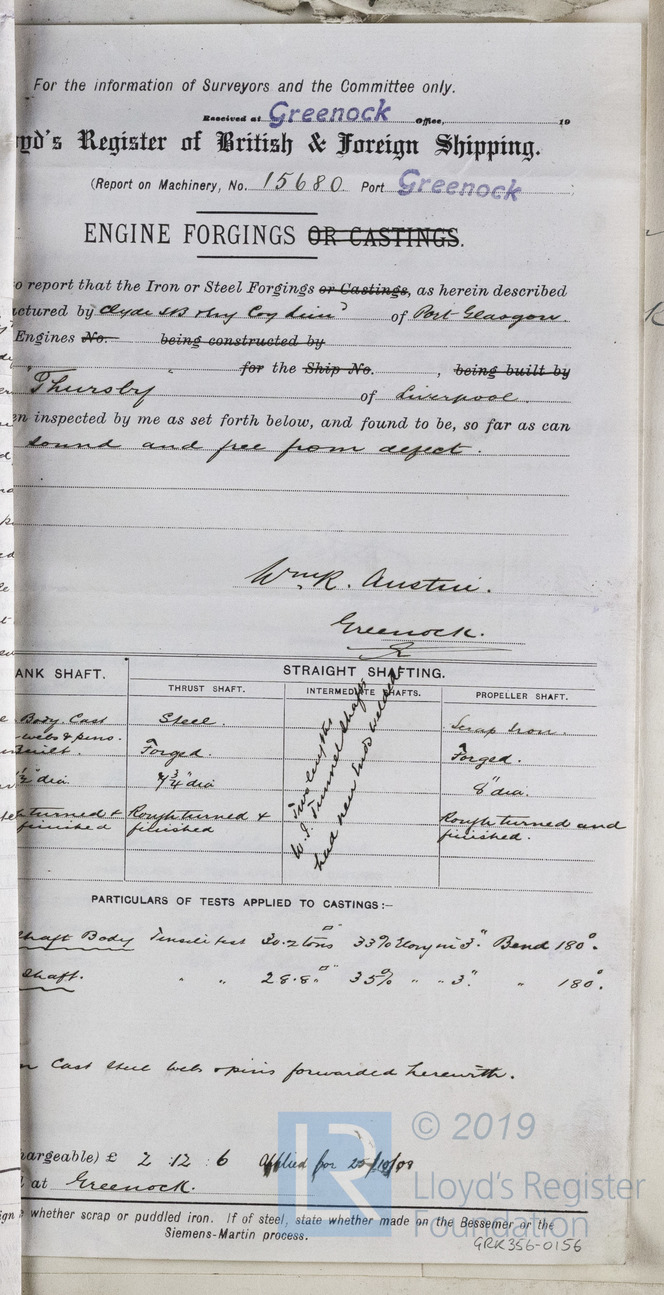 For the information of Surveyors and the Committee only.
Received at Greenock Office, 19
yd's Register of British & Foreign Shipping.
(Report on Machinery, No. 15680 Port Greenock
ENGINE FORGINGS OR CASTINGS.
o report that the Iron or Steel Forgings or Castings, as herein described
actured by Clyde SB & Eng Coy Lim^d of Port Glasgow.
Engines No. being constructed by
" for the Ship No. , being built by
"Thursby of Liverpool.
en inspected by me as set forth below, and found to be, so far as can
sound and free from defect.
Wm R. Austin.
Greenock.
ANK SHAFT. STRAIGHT SHAFTING.
THRUST SHAFT. INTERMEDIATE SHAFTS. PROPELLER SHAFT.
Body. Cast Steel. Scrap Iron.
webs & pins.
Built. Forged. Forged.
½" dia 7¾" dia 8" dia.
turned & Rough turned & Rough turned and
finished finished finished.
Two lengths
W.I. Tunnel shafts
had new ends welded
PARTICULARS OF TESTS APPLIED TO CASTINGS:—
shaft Body Tensile test 30.2 tons □" 33% Elong in 3". Bend 180°.
Shaft. " " 28.8 " □" 35% " " 3". " 180°.
Cast steel webs & pins forwarded herewith.
hargeable) £ 2 : 12 : 6 Applied for 25/10/09
at Greenock.
ign whether scrap or puddled iron. If of steel, state whether made on the Bessemer or the
Siemens-Martin process.
GRK356-0156
© 2019
LR
Lloyd's Register
Foundation